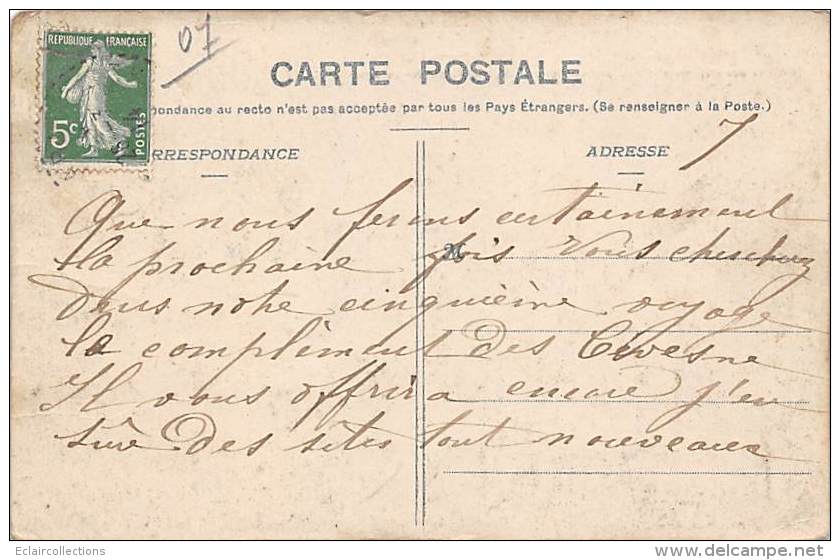 07
RÉPUBLIQUE FRANÇAISE
5c
POSTES
CARTE POSTALE
pondance au recto n'est pas acceptée par tous les Pays Étrangers. (Se renseigner à la Poste.)
RRESPONDANCE
ADRESSE
7
M
Que nous ferons certainement
la prochaine fois Vous cherchez
dans notre cinquième voyage
le complément des
Il vous offrira encore j'en
sûr des sites tout nouveaux
Eclaircollections
www.delcampe.net